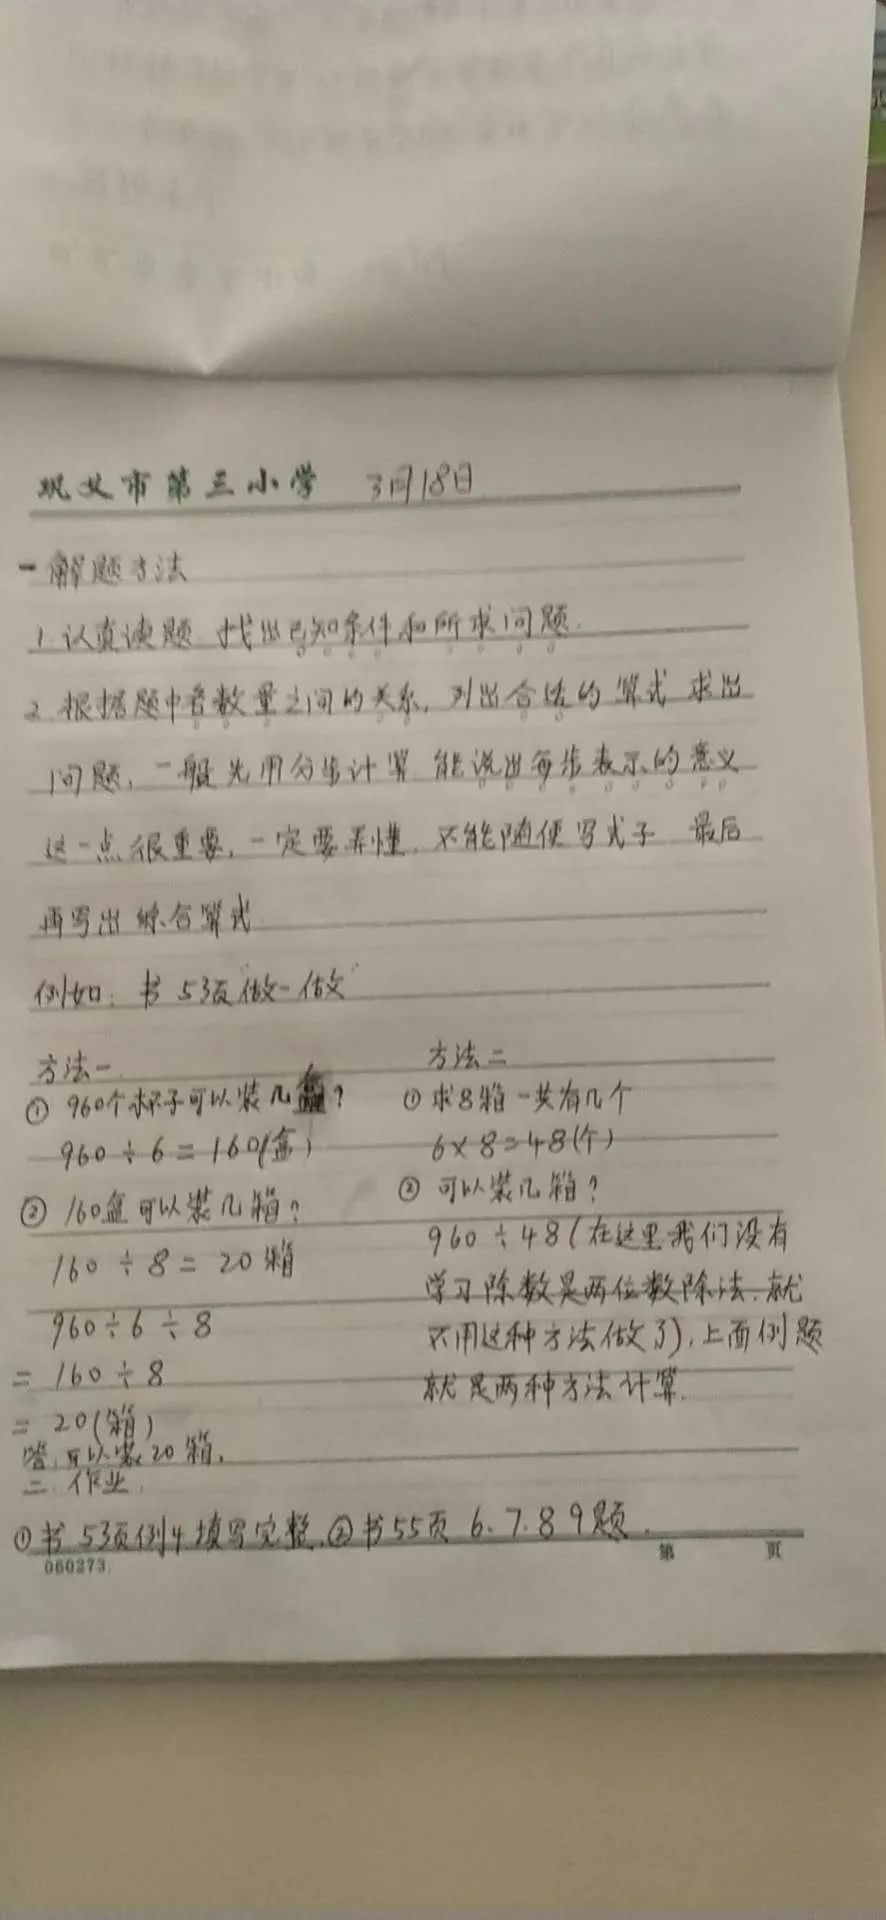 巩义市第三小学 3月18日
一解题方法
1.认真读题.找出已知条件和所求问题.
2.根据题中各数量之间的关系,列出合适的算式 求出
问题,一般先用分步计算 能说出每步表示的意义
这一点很重要,一定要弄懂.不能随便写式子 最后
再写出综合算式
例如:书53页做一做
方法一
① 960个杯子可以装几盒?
960÷6=160(盒)
② 160盒可以装几箱?
160÷8=20箱
960÷6÷8
=160÷8
=20(箱)
答,可以装20箱.
方法二
① 求8箱一共有几个
6×8=48(个)
② 可以装几箱?
960÷48(在这里我们没有
学习除数是两位数除法.就
不用这种方法做了),上面例题
就是两种方法计算.
二.作业.
①书53页例4填写完整.②书55页 6.7.8 9题.
060273
第 页